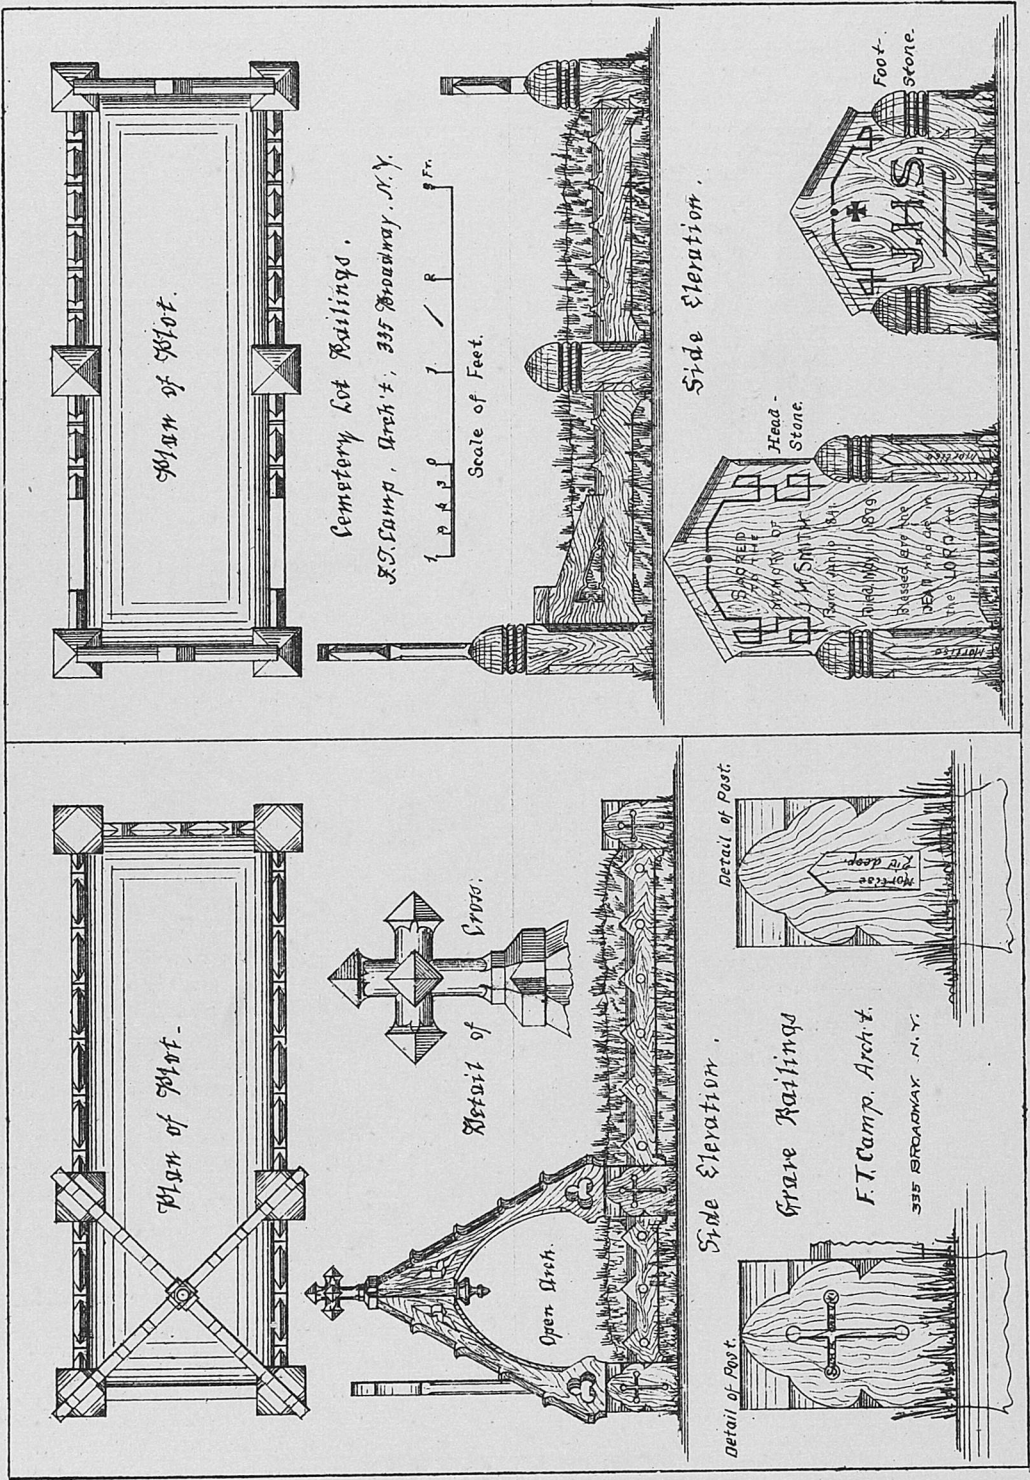 Plan of Plot.
Cemetery Lot Railings.
F. T. Camp. Arch't, 335 Broadway. N.Y.
Scale of Feet.
Ft.
Side Elevation.
Head-
Stone.
SACRED
MEMORY OF
J H SMITH
Born Jan 10 1841
Died May 1 1879
Blessed are the
DEAD who die in
the LORD
Mortise
Mortise
Foot-
Stone.
J.H.S.
Plan of Plot.
Detail of Cross.
Open Arch.
Side Elevation.
Grave Railings
F. T. Camp. Arch't.
335 BROADWAY. N.Y.
Detail of Post.
Detail of Post.
Mortise
deep.